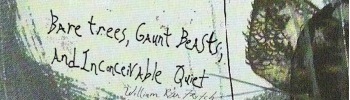 Bare trees, Gaunt Beasts,
And Inconceivable Quiet
William